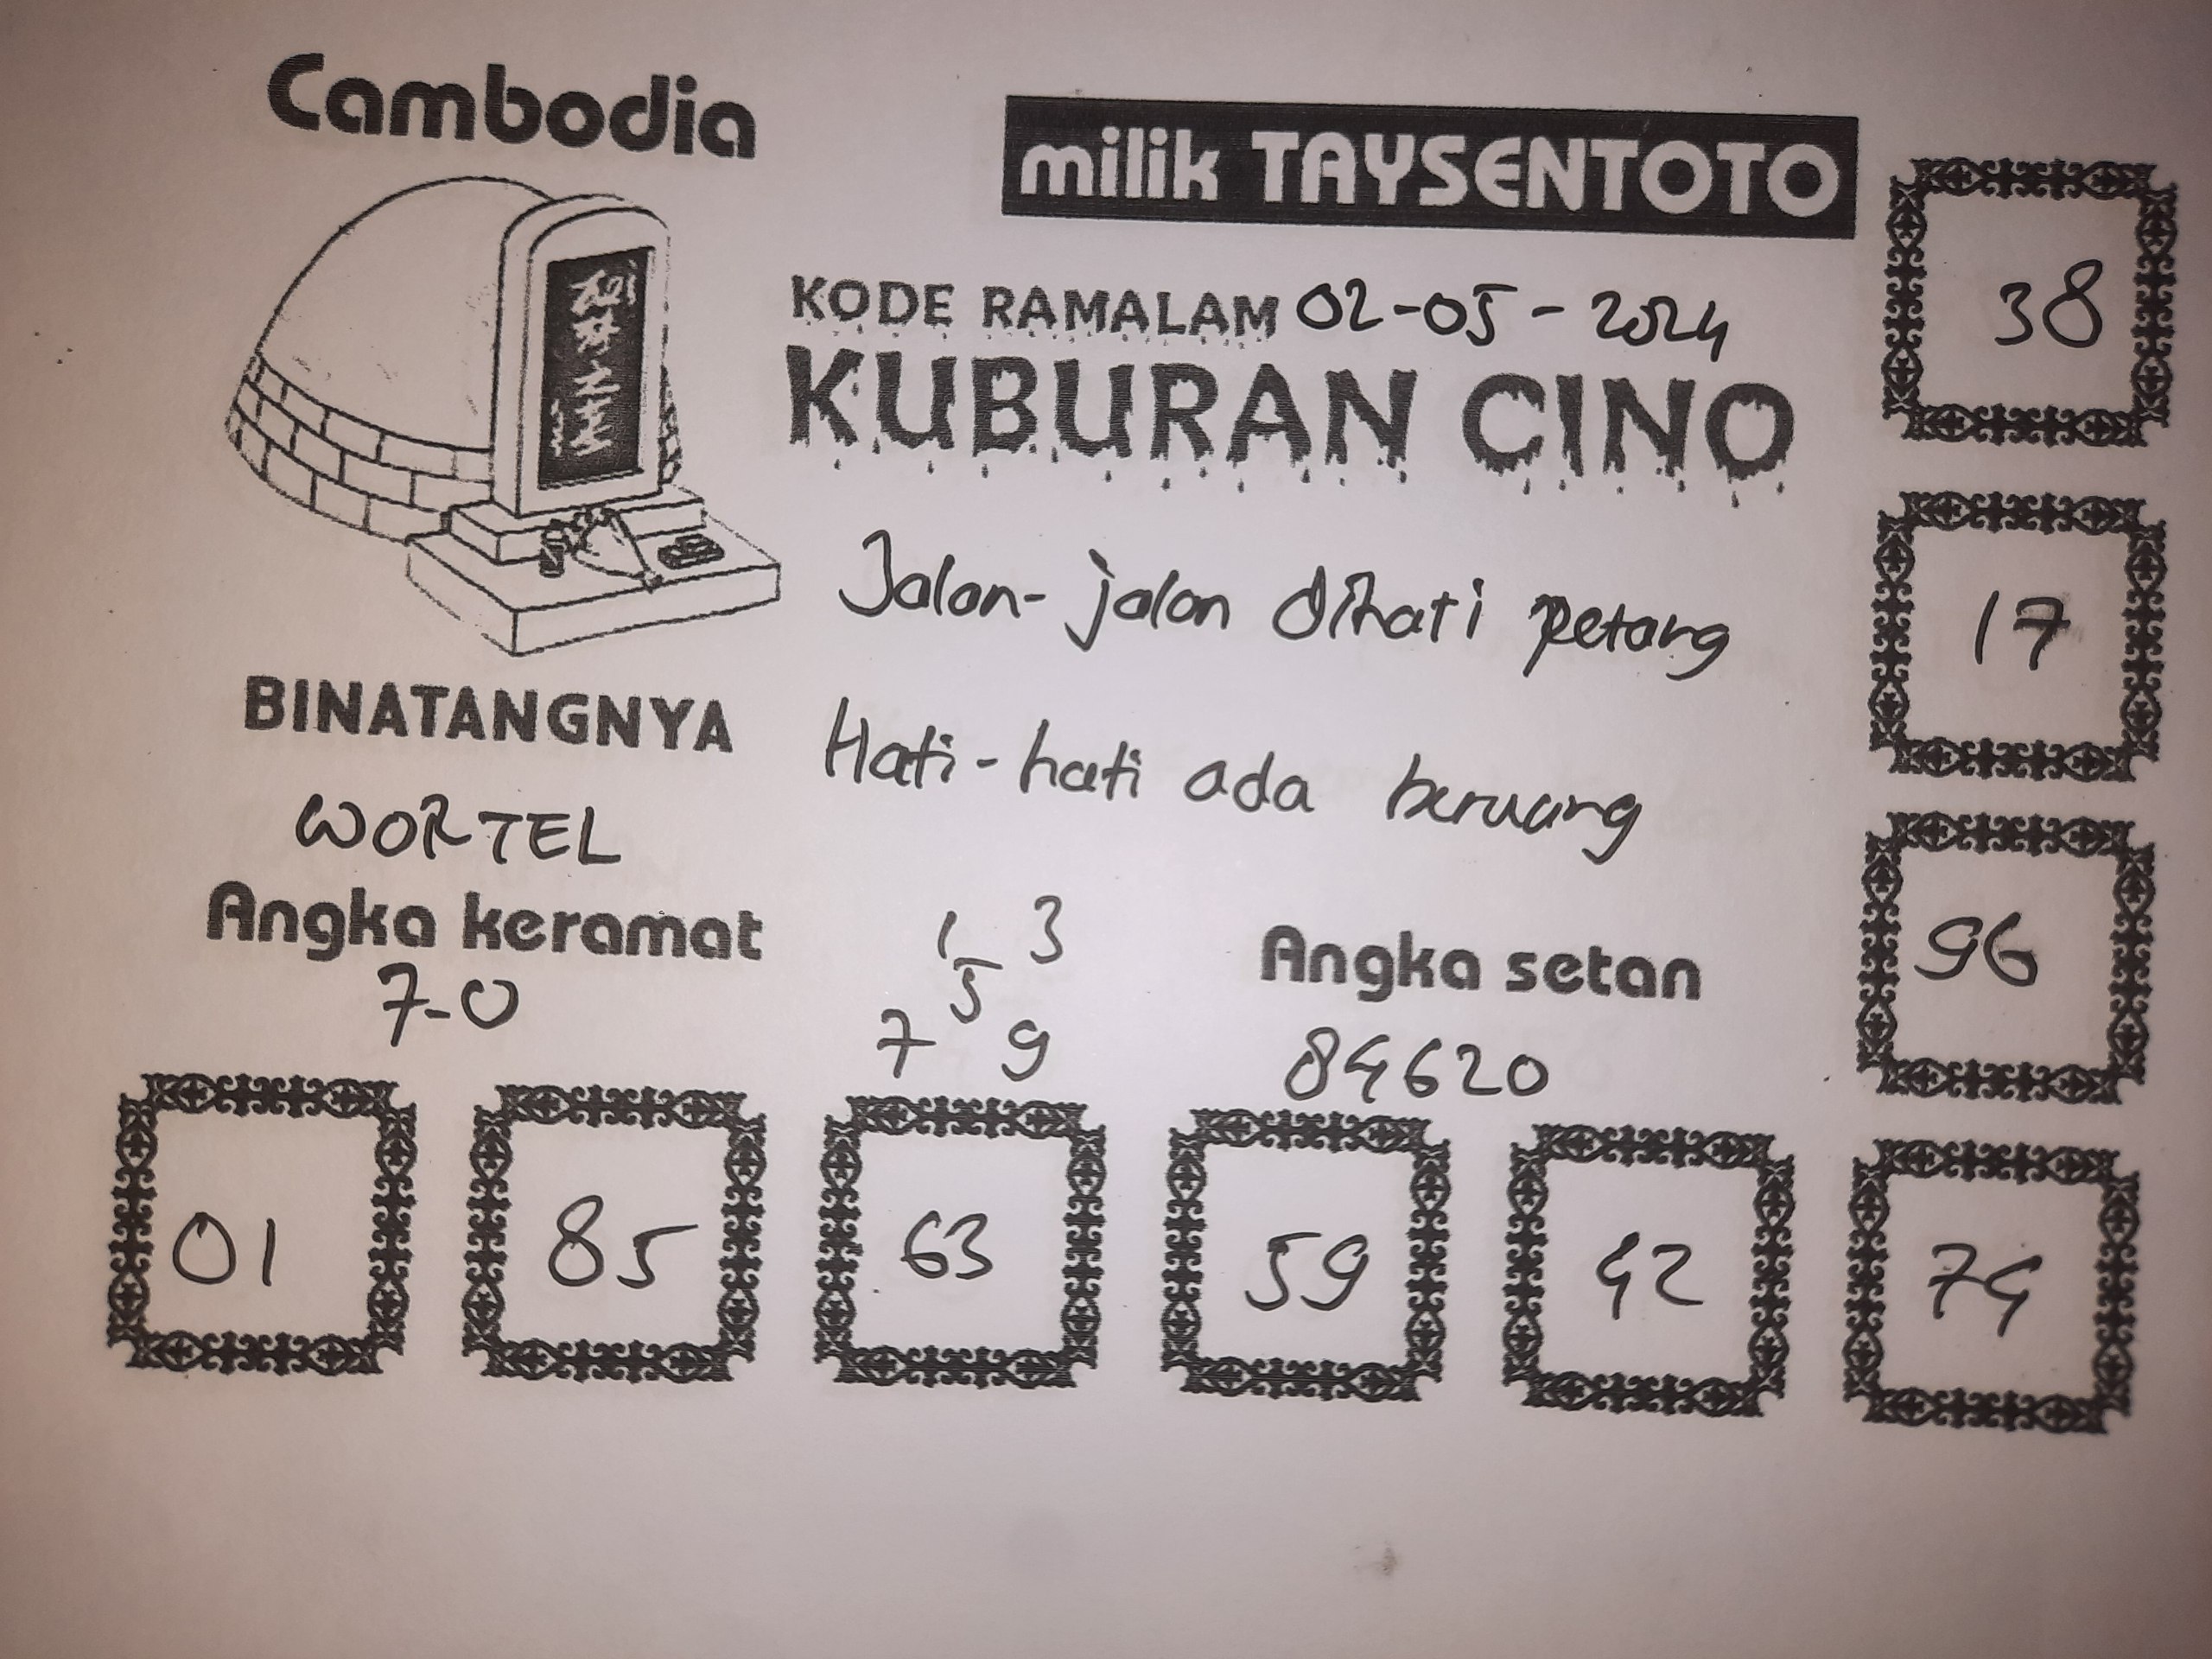 Cambodia
milik TAYSENTOTO
KODE RAMALAM 02-05-2024
KUBURAN CINO
Jalan-jalan dihati petang
Hati-hati ada beruang
BINATANGNYA
WORTEL
Angka keramat
7-0
1 3
5
7 9
Angka setan
84620
38
17
96
01 85 63 59 42 74